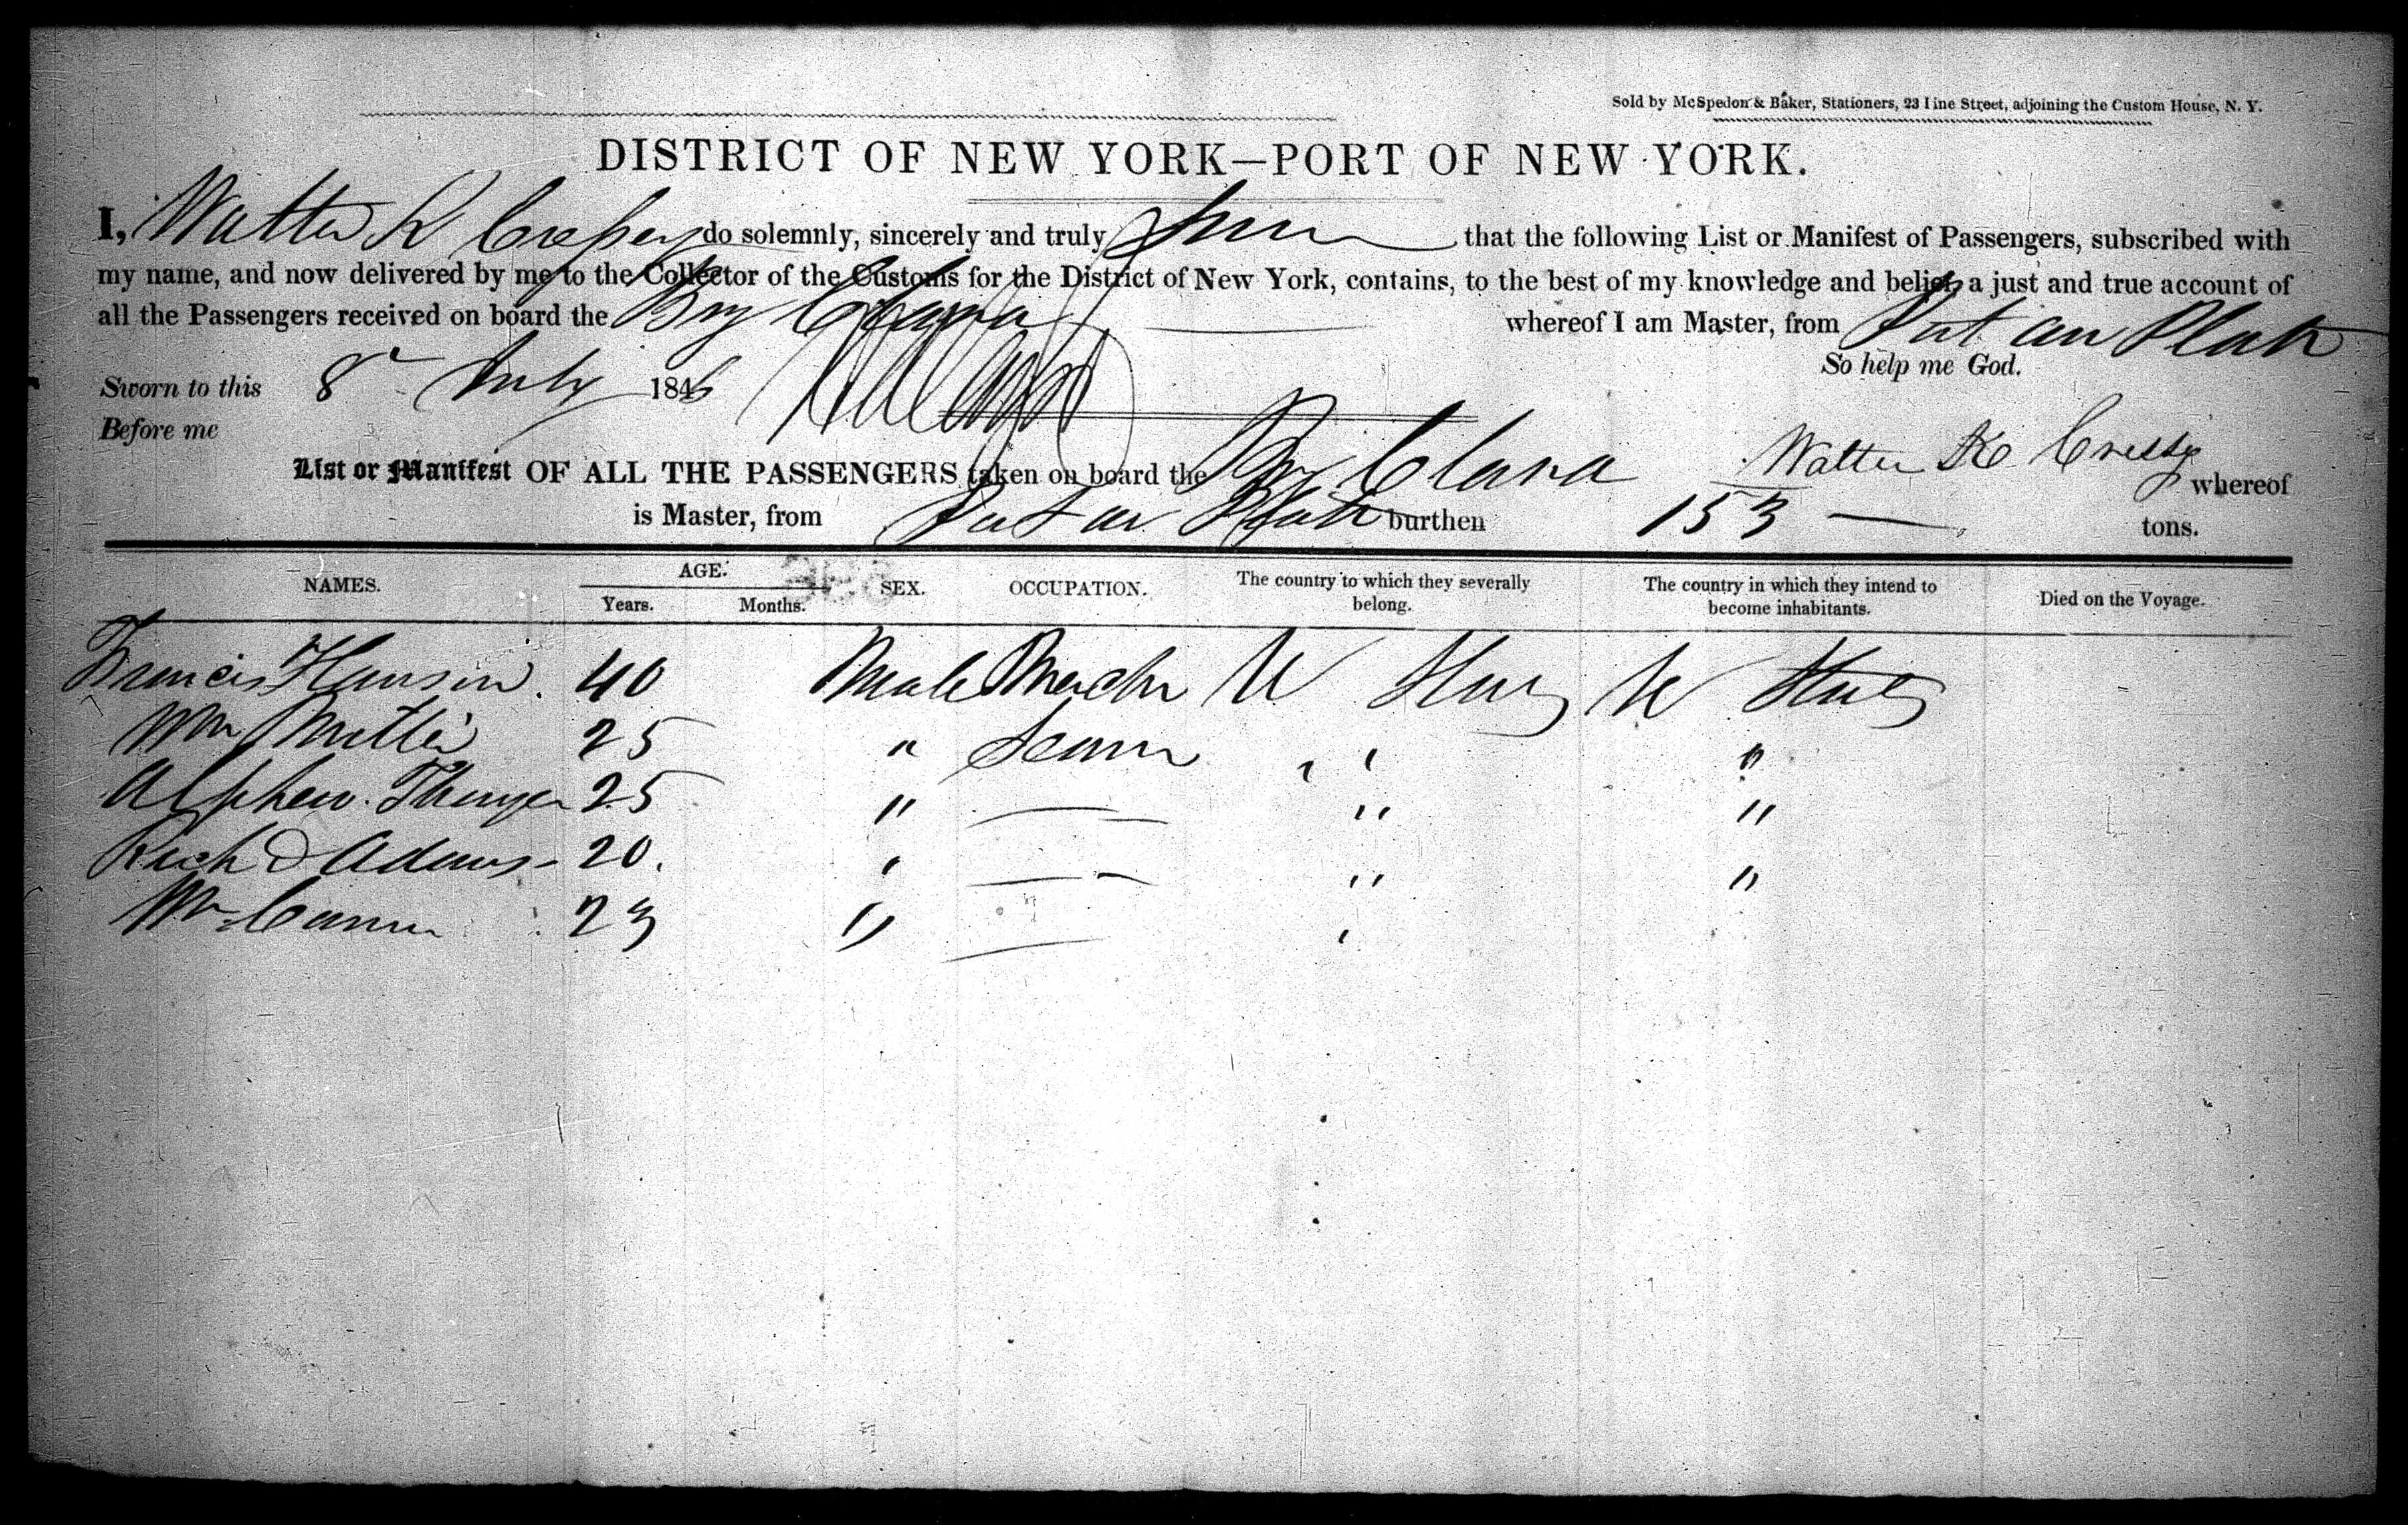 Sold by McSpedon & Baker, Stationers, 23 Pine Street, adjoining the Custom House, N. Y.
DISTRICT OF NEW YORK—PORT OF NEW YORK.
I, Walter K Cressy do solemnly, sincerely and truly swear that the following List or Manifest of Passengers, subscribed with
my name, and now delivered by me to the Collector of the Customs for the District of New York, contains, to the best of my knowledge and belief, a just and true account of
all the Passengers received on board the Brig Clara whereof I am Master, from Port au Platt
So help me God.
Sworn to this 8 July 1846
Before me
Walter K Cressy
List or Manifest OF ALL THE PASSENGERS taken on board the Brig Clara whereof
is Master, from Port au Platt burthen 153 tons.
NAMES. AGE. SEX. OCCUPATION. The country to which they severally belong. The country in which they intend to become inhabitants. Died on the Voyage.
Years. Months.
Francis Hansen. 40 Male U States U States
Wm 25 " Seaman " "
25 " — " "
Richd Adams 20. " — " "
Wm 23 " — "